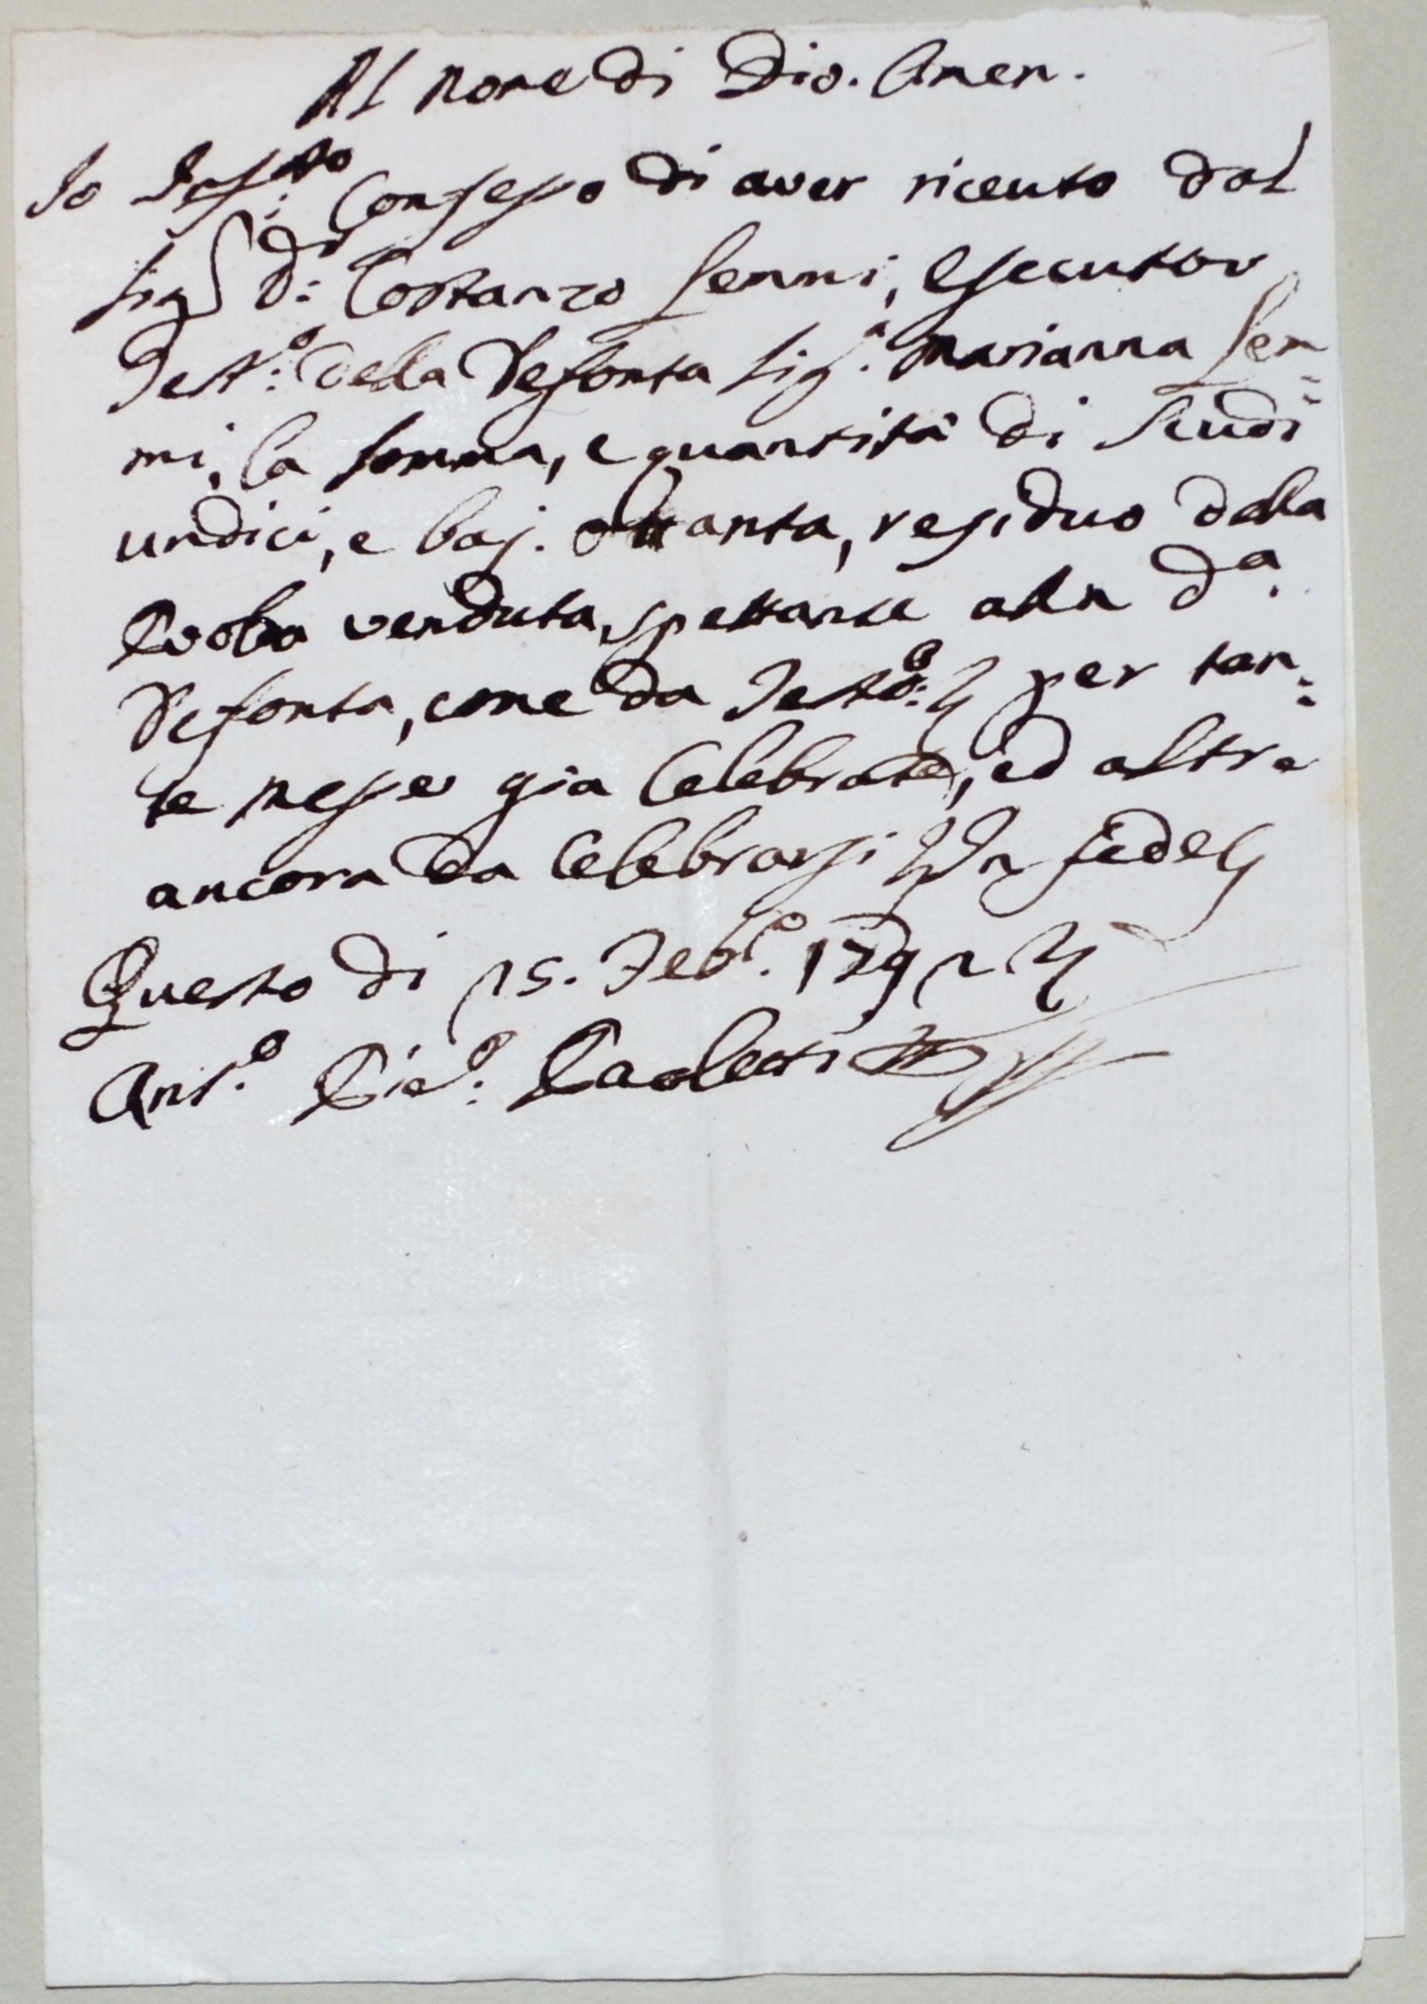 Al nome di Dio. Amen.
Io Infr:tto Confesso di aver riceuto dal
Sigr D: Costanzo Semmi, Esecutor
Test:o della Defonta Sig.a Marianna Sem=
mi, la somma, e quantità di Scudi
undici, e baj. ottanta, residuo della
Robba venduta, spettante alla d.a
Defonta, come da Testo:o per tan=
te messe già Celebrate, ed altre
ancora da Celebrarsi In fede
Questo di 15. Feb.o 1792
Ant.o Pie.o Paoletti